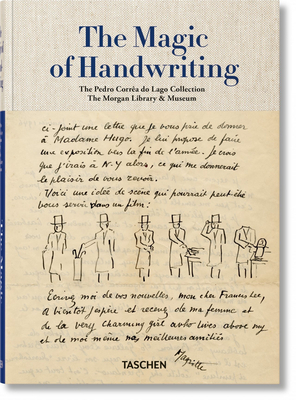 The Magic
of Handwriting
The Pedro Corrêa do Lago Collection
The Morgan Library & Museum
ci-joint une lettre que je vous prie de donner
à Madame Hugo. Je lui propose de faire
une exposition vers la fin de l'année. Je crois
que j'irais à N-Y alors, ce qui me donnerait
le plaisir de vous revoir.
Voici une idée de scène qui pourrait peut-être
vous servir dans un film:
Ecrivez moi de vos nouvelles, mon cher Francis Lee,
A bientôt j'espère et recevez de ma femme et
de la very charming girl who lives above my
et de moi même, nos meilleures amitiés
Magritte
TASCHEN